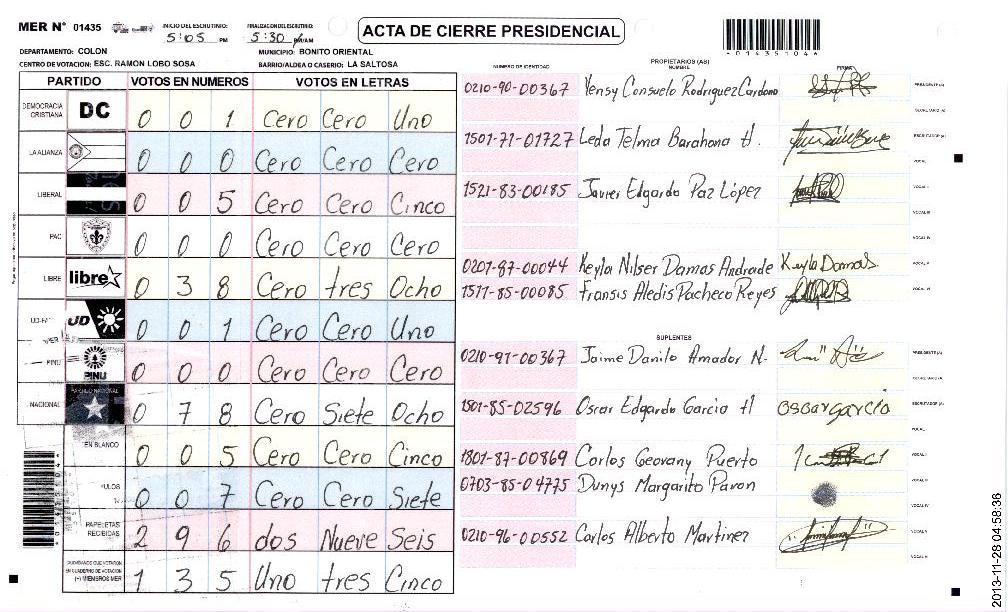 MER N° 01435
INICIO DEL ESCRUTINIO: 5:05 PM
FINALIZACION DEL ESCRUTINIO: 5:30 PM/AM
ACTA DE CIERRE PRESIDENCIAL
*01435104*
DEPARTAMENTO: COLON
MUNICIPIO: BONITO ORIENTAL
CENTRO DE VOTACION: ESC. RAMON LOBO SOSA
BARRIO/ALDEA O CASERIO: LA SALTOSA
PARTIDO VOTOS EN NUMEROS VOTOS EN LETRAS
DEMOCRACIA CRISTIANA DC 0 0 1 Cero Cero Uno
LA ALIANZA 0 0 0 Cero Cero Cero
LIBERAL 0 0 5 Cero Cero Cinco
PAC 0 0 0 Cero Cero Cero
LIBRE libre 0 3 8 Cero tres Ocho
UD 0 0 1 Cero Cero Uno
PINU PINU 0 0 0 Cero Cero Cero
NACIONAL PARTIDO NACIONAL 0 7 8 Cero Siete Ocho
EN BLANCO 0 0 5 Cero Cero Cinco
0 0 7 Cero Cero Siete
PAPELETAS RECIBIDAS 2 9 6 dos Nueve Seis
CIUDADANOS QUE VOTARON EN CUADERNO DE VOTACION (+) MIEMBROS MER 1 3 5 Uno tres Cinco
NUMERO DE IDENTIDAD
PROPIETARIOS (AS)
NOMBRE
FIRMA
0210-90-00367 Yensy Consuelo Rodriguez Cardona PRESIDENTE (A)
SECRETARIO (A)
1501-71-01727 Leda Telma Barahona H. ESCRUTADOR (A)
VOCAL
1521-83-00185 Javier Edgardo Paz López VOCAL II
VOCAL III
VOCAL IV
0207-87-00044 Keyla Nilser Damas Andrade Keyla Damas VOCAL V
1511-85-00085 Fransis Aledis Pacheco Reyes VOCAL VI
SUPLENTES
0210-91-00367 Jaime Danilo Amador N. PRESIDENTE (A)
SECRETARIO (A)
1501-85-02596 Oscar Edgardo Garcia H Oscar garcia ESCRUTADOR (A)
VOCAL
1801-87-00869 Carlos Geovany Puerto
0703-85-04775 Dunys Margarito Pavon
VOCAL IV
0210-96-00552 Carlos Alberto Martinez VOCAL V
2013-11-28 04:58:36